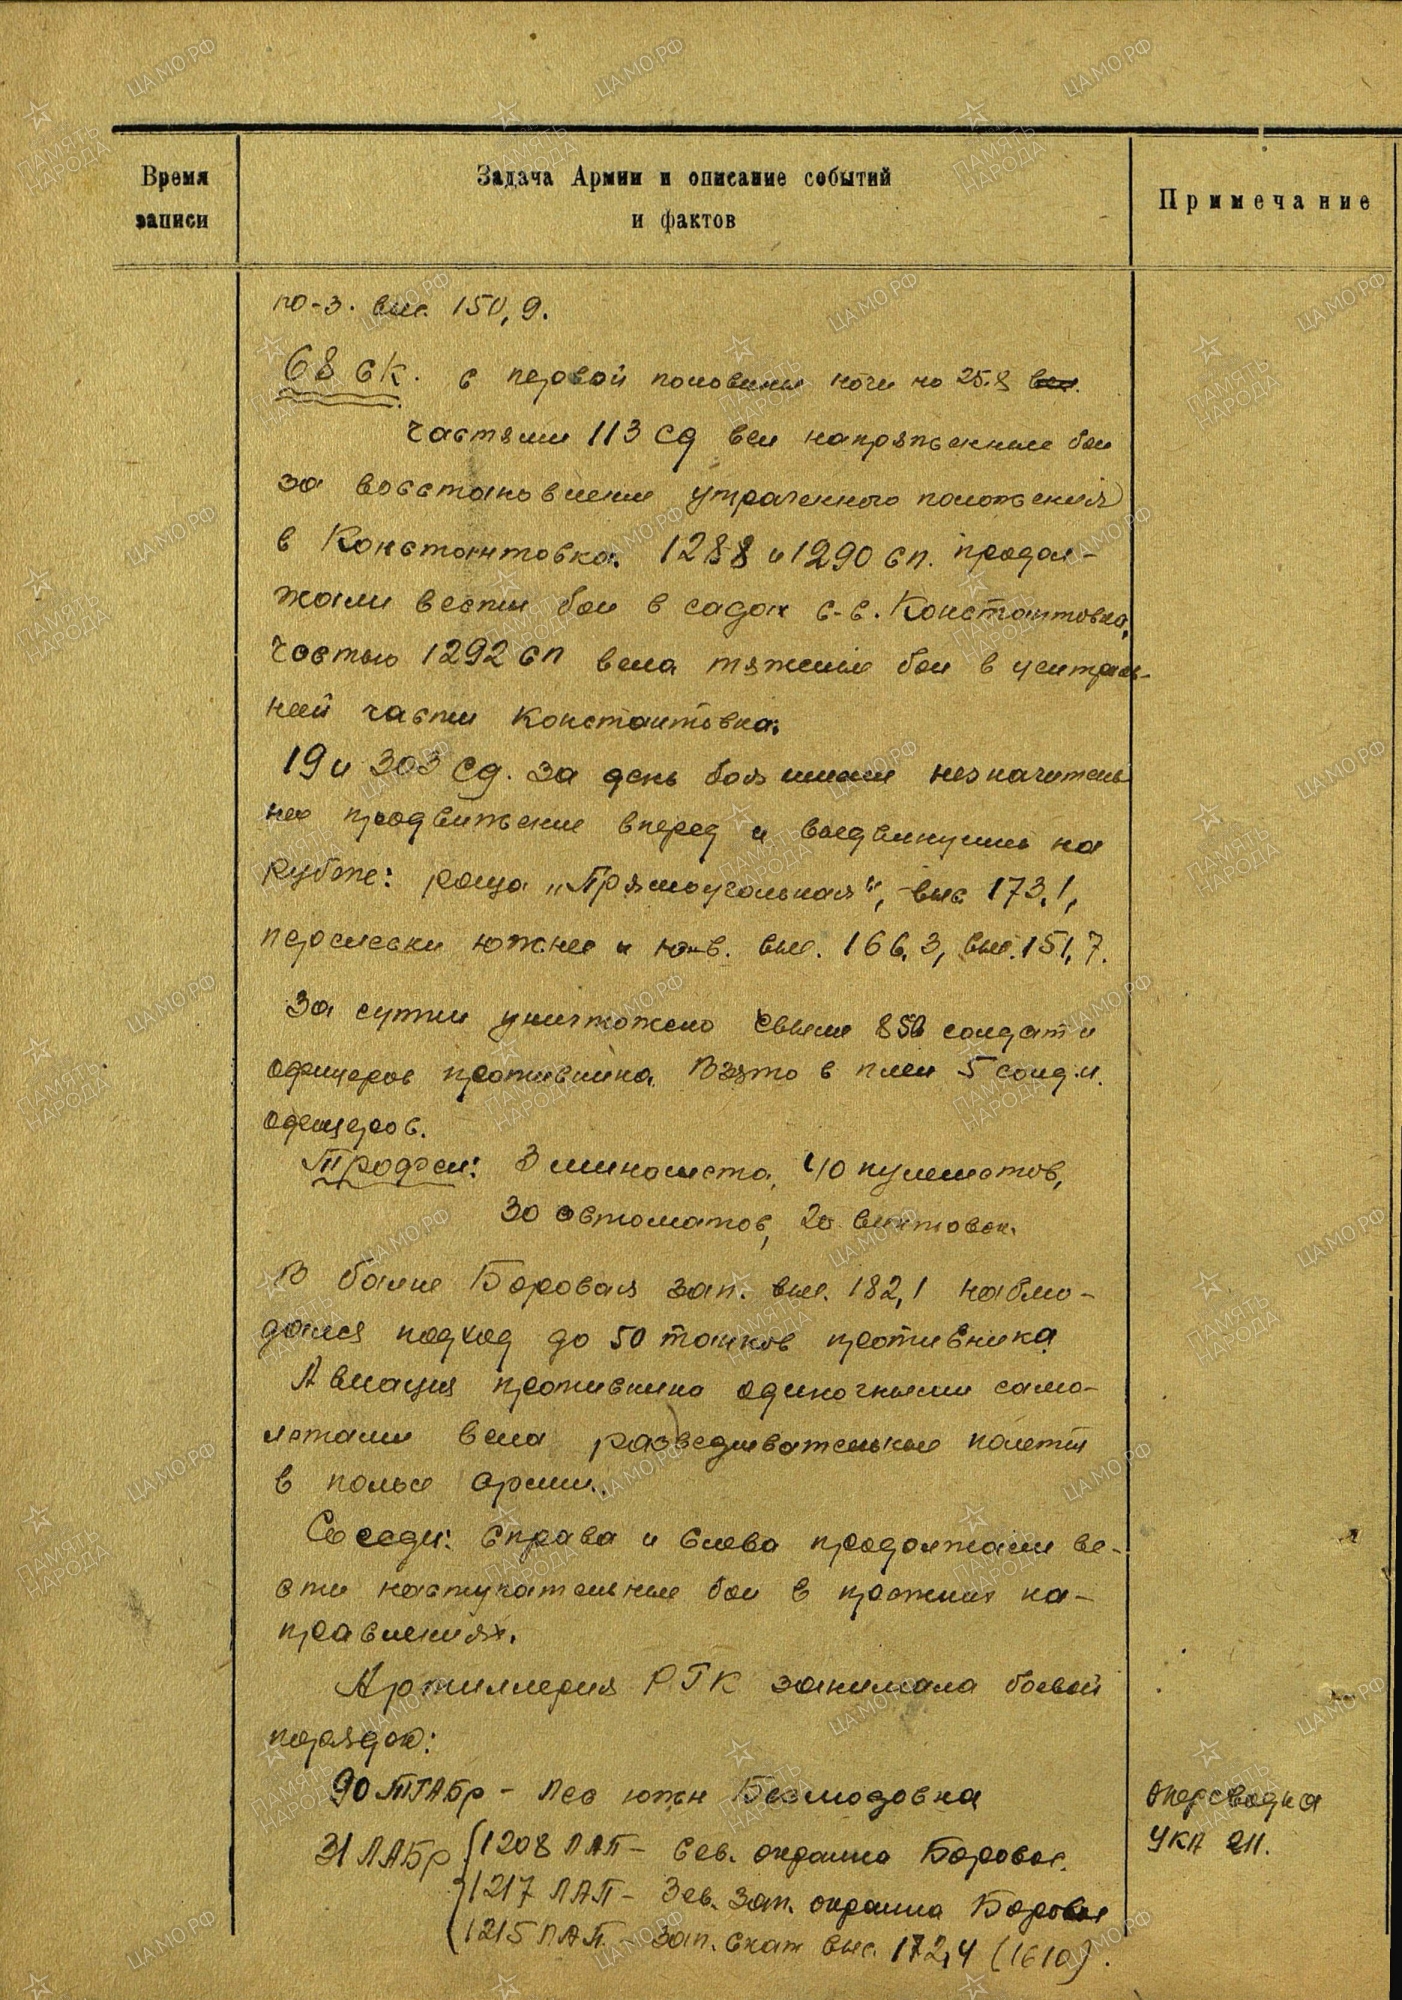 Время записи
Задача Армии и описание событий
и фактов
Примечание
ю-з. выс. 150,9.
68 ск. с первой половины ночи на 25.8
частями 113 сд вел напряженные бои
за восстановление утраченного положения
в Константовка. 1288 и 1290 сп. продол-
жали вести бои в садах с-в. Константовка,
частью 1292 сп вела тяжелые бои в централь-
ной части Константовка.
19 и 303 сд. за день боя имели незначитель
ное продвижение вперед и выдвинулись на
рубеже: роща „Прямоугольная", выс 173,1,
перелески южнее и ю-в. выс. 166,3, выс. 151,7.
За сутки уничтожено свыше 850 солдат и
офицеров противника. Взято в плен 5 солд. и.
офицеров.
Трофеи: 3 миномета, 40 пулеметов,
30 автоматов, 20 винтовок.
В балке Боровая зап. выс. 182,1 наблю-
дался подход до 50 танков противника
Авиация противника одиночными само-
летами вела разведывательные полеты
в полосе армии.
Соседи: справа и слева продолжали ве-
сти наступательные бои в прежних на-
правлениях.
Артиллерия РГК занимала боевой
порядок:
90 ТГАБр - лес южн Безлюдовка
31 ЛАБр 1208 ЛАП - сев. окраина Боровое.
1217 ЛАП - Зев. зап. окраина Боровое
1215 ЛАП - зап. скат выс. 172,4 (1610).
Оперсводка
УКА 211.